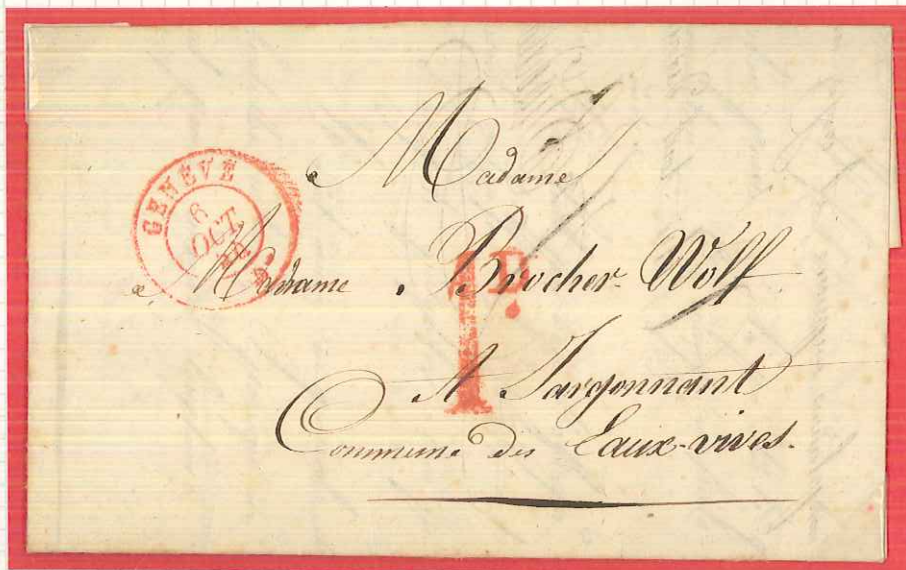 GENÈVE
6
OCT.
à Madame
à Madame Brocher-Wolf
1 P.
A Jargonnant
Commune des Eaux-vives.